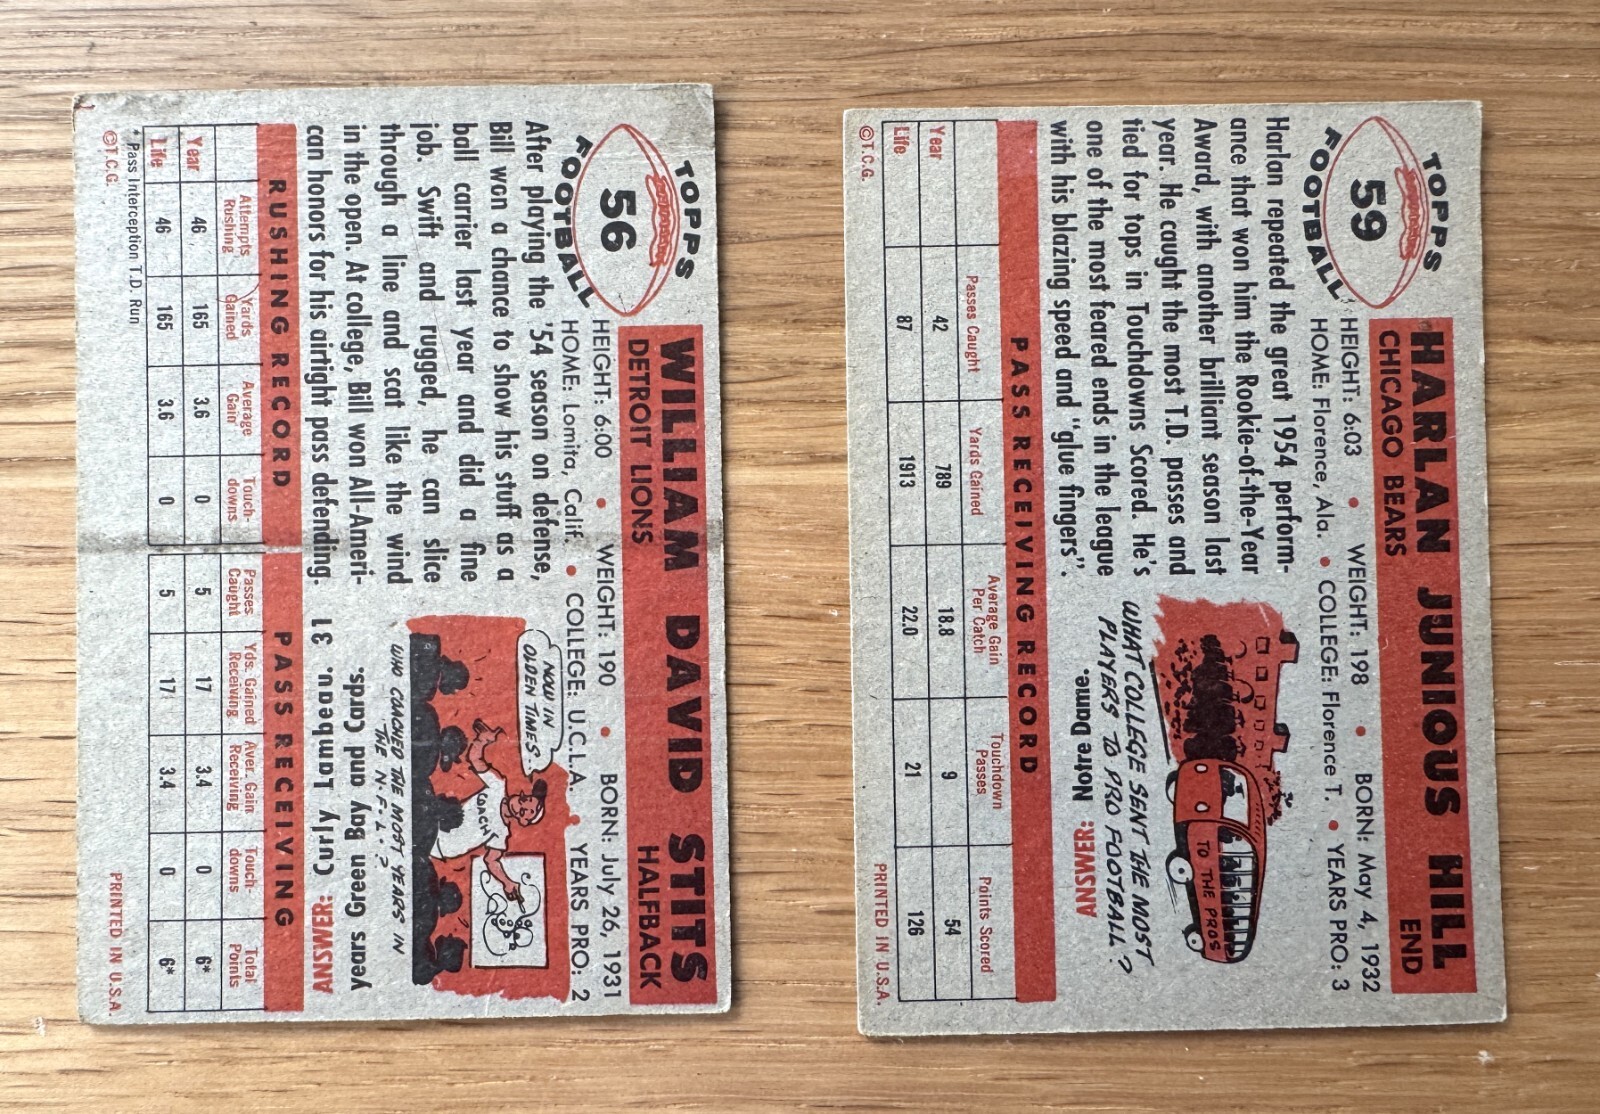 TOPPS
59
FOOTBALL
HARLAN JUNIOUS HILL
CHICAGO BEARS
END
HEIGHT: 6:03 • WEIGHT: 198 • BORN: May 4, 1932
HOME: Florence, Ala. • COLLEGE: Florence T. • YEARS PRO: 3
Harlan repeated the great 1954 perform-
ance that won him the Rookie-of-the-Year
Award, with another brilliant season last
year. He caught the most T.D. passes and
tied for tops in Touchdowns Scored. He's
one of the most feared ends in the league
with his blazing speed and "glue fingers".
TO THE PROS
WHAT COLLEGE SENT THE MOST
PLAYERS TO PRO FOOTBALL?
ANSWER: Notre Dame.
PASS RECEIVING RECORD
Passes Caught Yards Gained Average Gain Per Catch Touchdown Passes Points Scored
Year 42 789 18.8 9 54
Life 87 1913 22.0 21 126
©T.C.G. PRINTED IN U.S.A.
TOPPS
56
FOOTBALL
WILLIAM DAVID STITS
DETROIT LIONS
HALFBACK
HEIGHT: 6:00 • WEIGHT: 190 • BORN: July 26, 1931
HOME: Lomita, Calif. • COLLEGE: U.C.L.A. • YEARS PRO: 2
After playing the '54 season on defense,
Bill won a chance to show his stuff as a
ball carrier last year and did a fine
job. Swift and rugged, he can slice
through a line and scat like the wind
in the open. At college, Bill won All-Ameri-
can honors for his airtight pass defending.
NOW IN
OLDEN TIMES...
COACH
WHO COACHED THE MOST YEARS IN
THE N.F.L.?
ANSWER: Curly Lambeau. 31
years Green Bay and Cards.
RUSHING RECORD PASS RECEIVING
Attempts Rushing Yards Gained Average Gain Touch-downs Passes Caught Yds. Gained Receiving Aver. Gain Receiving Touch-downs Total Points
Year 46 165 3.6 0 5 17 3.4 0 6*
Life 46 165 3.6 0 5 17 3.4 0 6*
* Pass Interception T.D. Run
©T.C.G. PRINTED IN U.S.A.